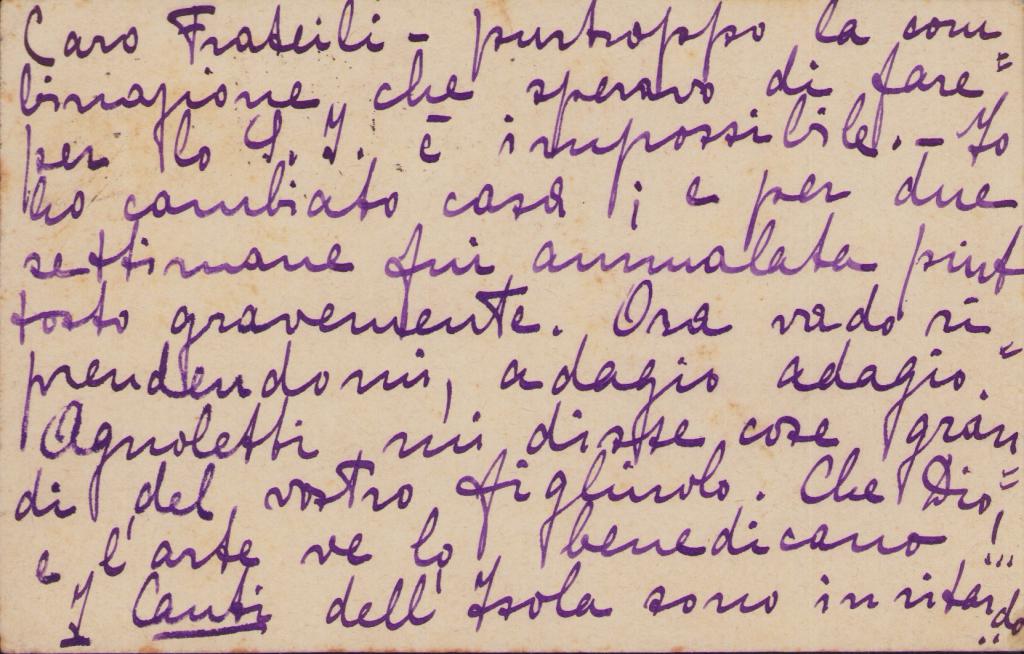 Caro Frateili - purtroppo la com
binazione, che speravo di fare=
per lo S. I. è impossibile. - Io
ho cambiato casa ; e per due
settimane fui ammalata piut
tosto gravemente. Ora vado ri
prendendomi, adagio adagio.=
Agnoletti mi disse cose gran
di del vostro figliuolo. Che Dio,=
e l'arte ve lo benedicano !...
I Canti dell'Isola sono in ritardo..